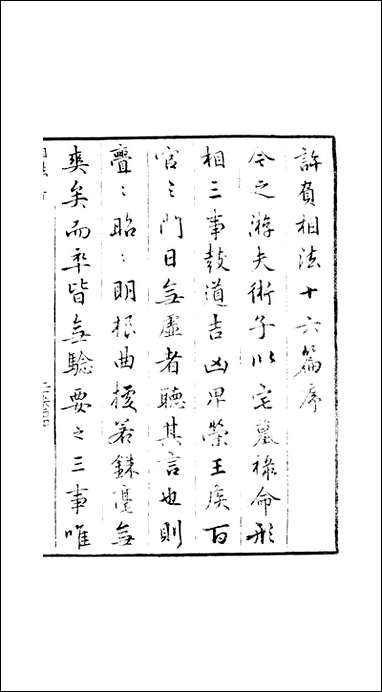 許負相法十六篇序
今之游夫術子以宅墓祿命形
相三事鼓道吉凶界榮王侯百
官之門日無虛者聽其言也則
亹〻昭〻明根曲援若銖毫無
爽矣而卒皆無驗要之三事唯